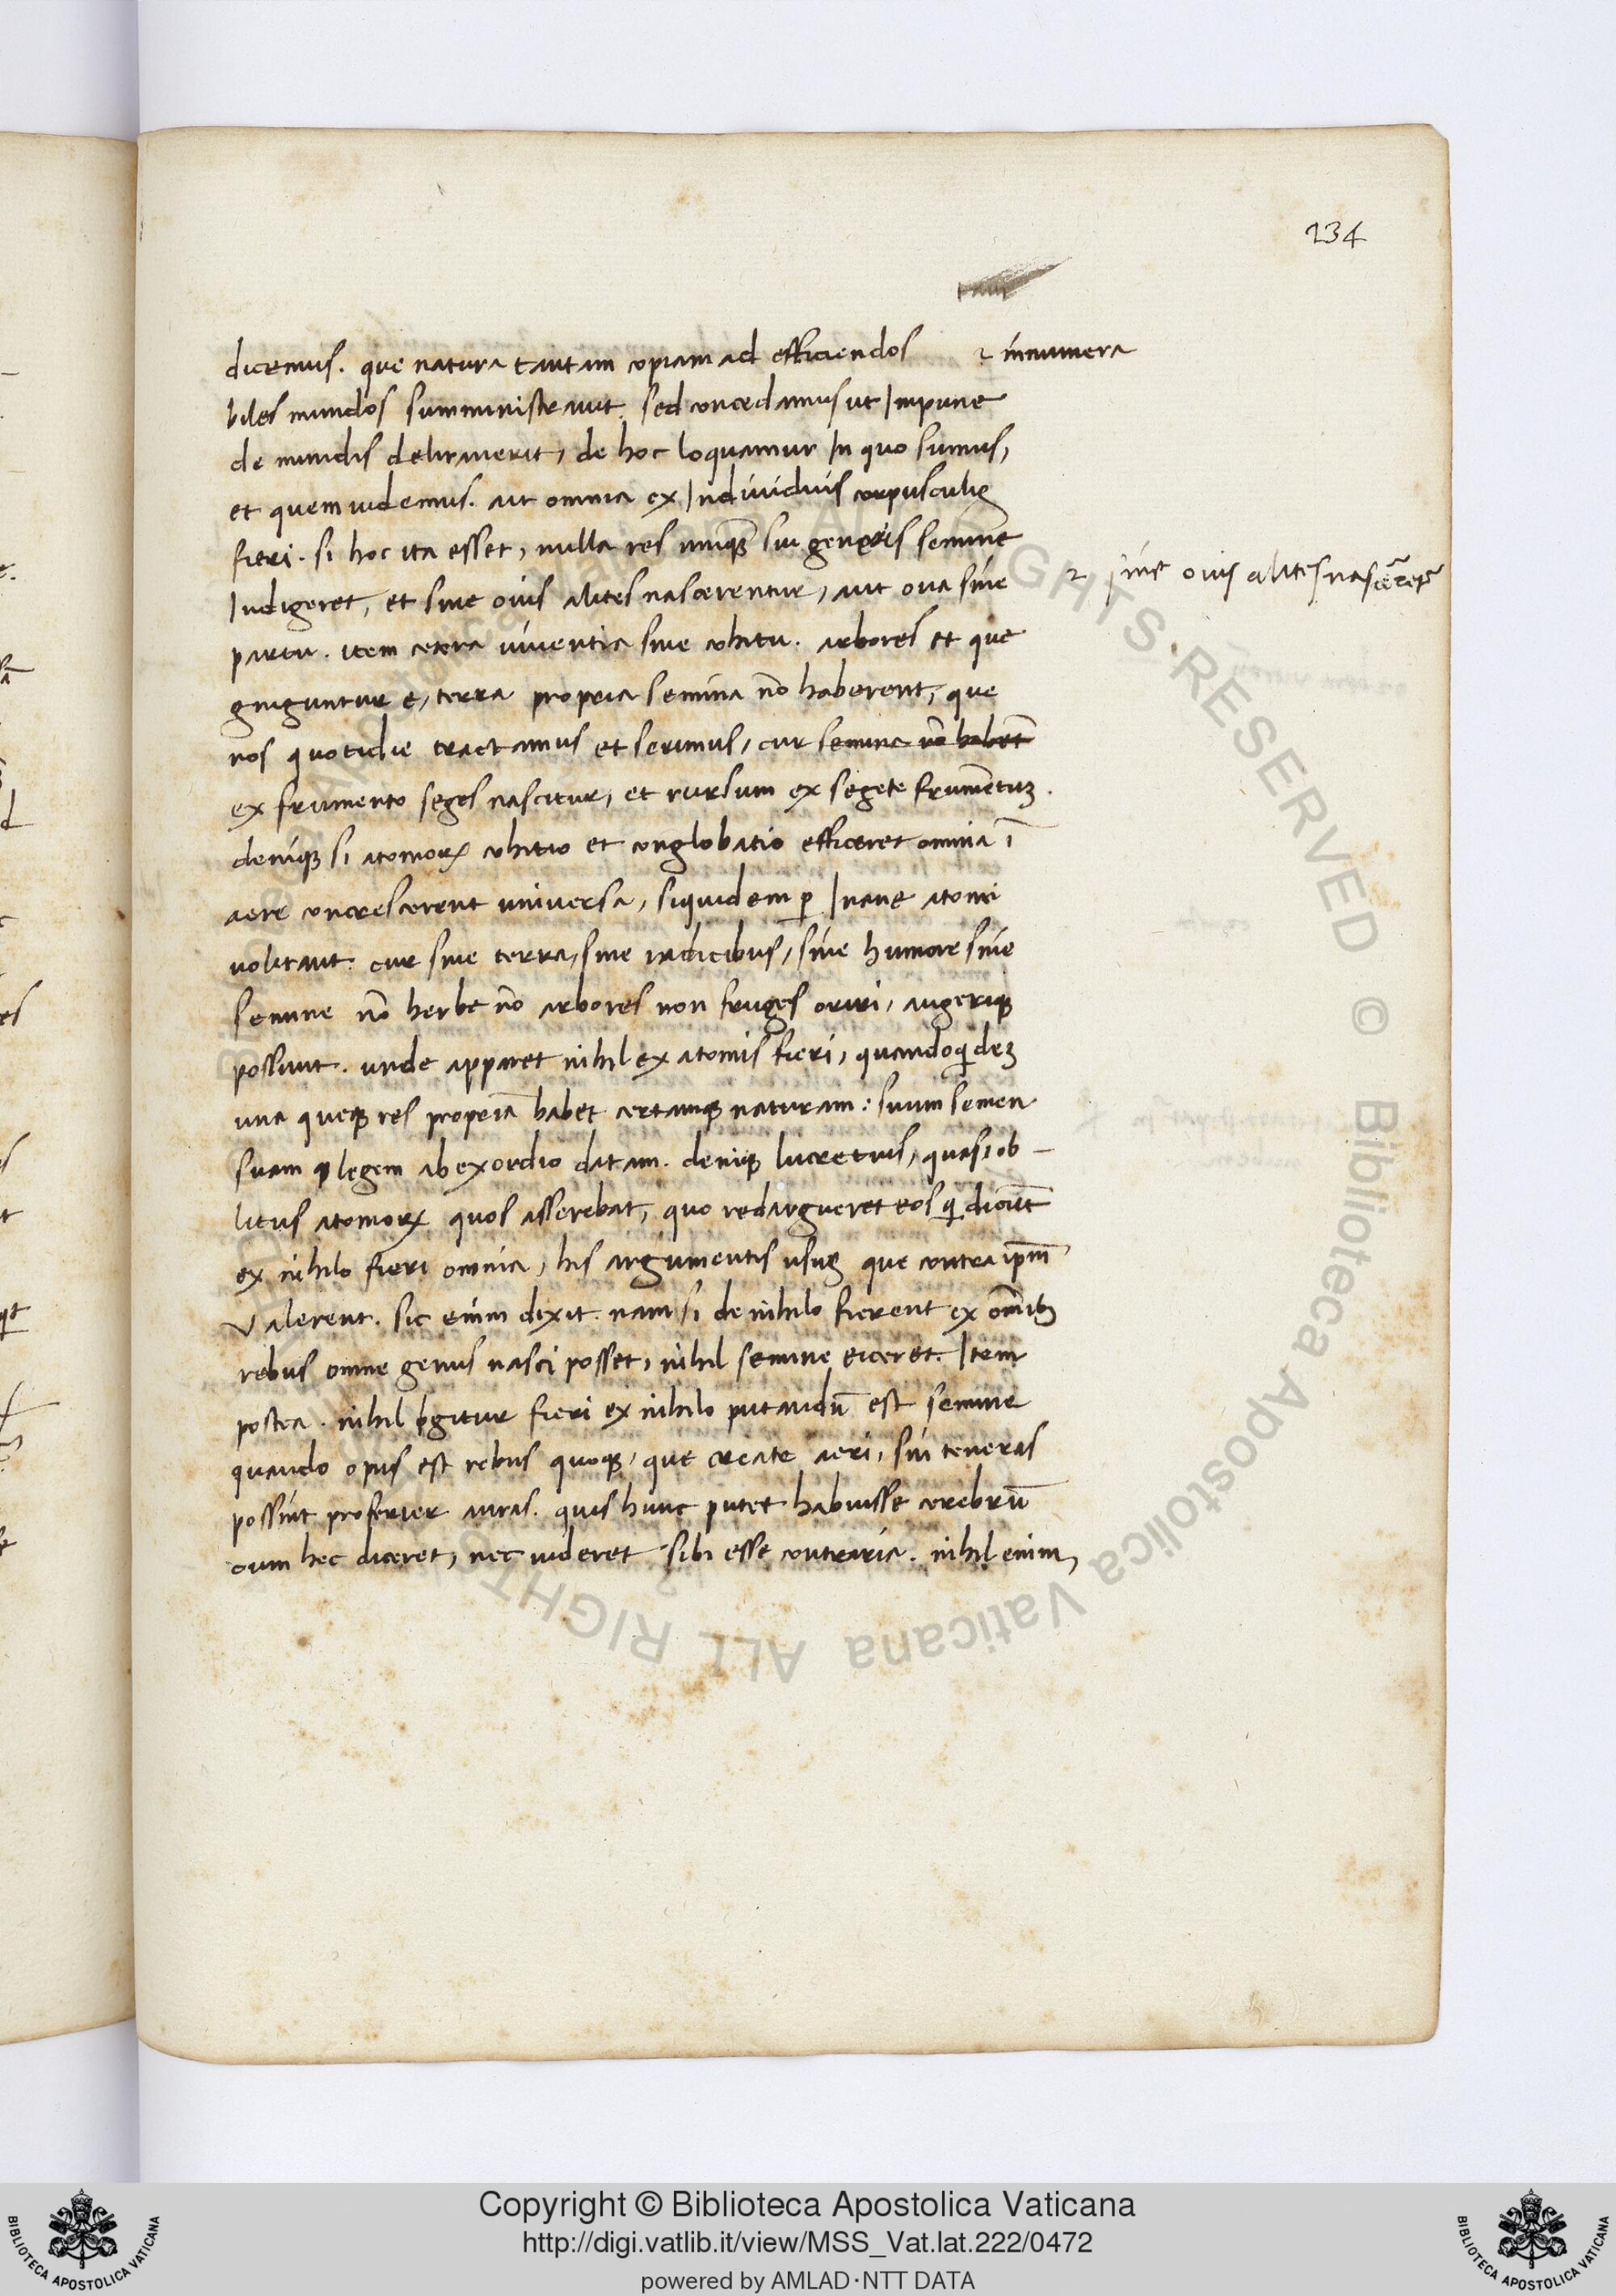 234
dicemus. que natura tantam copiam ad efficiendos innumera
biles mundos sumministravit. sed concedamus ut Impune
de mundis deliraverit, de hoc loquamur In quo sumus,
et quem videmus. ait omnia ex Individuis corpusculis
fieri. si hoc ita esset, nulla res unquã sui generis semine
Indigeret, et sine ovis alites nascerentur, aut ova sine
sine ovis alites nascẽretᷣ
partu. item cetera viventia sine cohitu. arbores et que
ginguntur e, terra propria semina nõ haberent, que
nos quotidie tractamus et serimus, cur semine nõ habẽt
ex frumento seges nascitur, et rursum ex segete frumẽtuꝫ.
deniqꝫ si atomoꝝ cohitio et conglobatio efficeret omnia ĩ
aere concrescerent universa, siquidem ꝑ Inane atomi
volitant. cur sine terra, sine radicibus, sine humore sine
semine nõ herbe nõ arbores non fruges oriri, augeriqꝫ
possunt. unde apparet nihil ex atomis fieri, quandoqͥdeꝫ
una queqꝫ res propriã habet certamqꝫ naturam: suum semen
suam qꝫ legem ab exordio datam. deniqꝫ lucretius, quasi ob-
litus atomoꝝ quos asserebat, quo redargueret eos qͥ dicũt
ex nihilo fieri omnia, his argumentis usus que contra ip̃m
Valerent. sic enim dixit. nam si de nihilo fierent ex om̃ibꝫ
rebus omne genus nasci posset, nihil semine eiceret. Item
postea. nihil Igitur fieri ex nihilo putandũ est semine
quando opus est rebus quoqꝫ, que create aeri, sui teneras
possint proferier auras. quis hunc putet habuisse cerebrũ
cum hec diceret, nec videret sibi esse contraria. nihil enim,
ALL RIGHTS RESERVED © Biblioteca Apostolica Vaticana
Copyright © Biblioteca Apostolica Vaticana
http://digi.vatlib.it/view/MSS_Vat.lat.222/0472
powered by AMLAD·NTT DATA
BIBLIOTECA APOSTOLICA VATICANA
BIBLIOTECA APOSTOLICA VATICANA